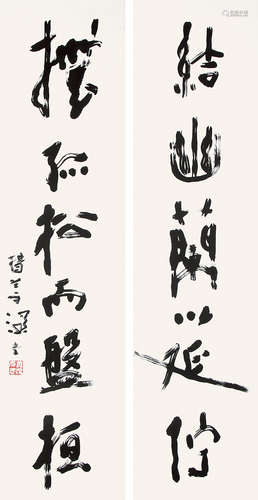 結幽蘭以延佇
撫孤松而盤桓